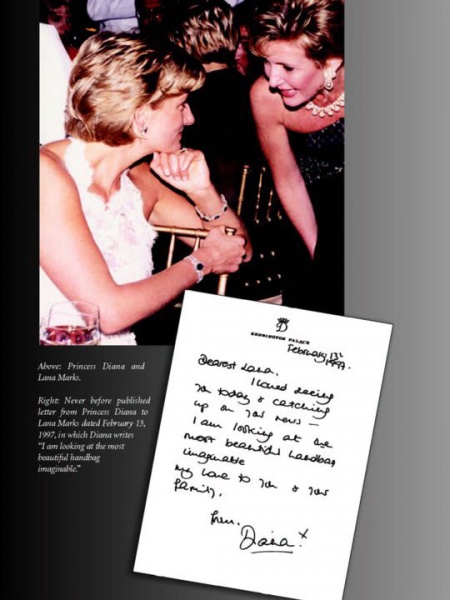 Above: Princess Diana and
Lana Marks.
Right: Never before published
letter from Princess Diana to
Lana Marks dated February 13,
1997, in which Diana writes
"I am looking at the most
beautiful handbag
imaginable."
KENSINGTON PALACE
February 13th
1997.
Dearest Lana,
I loved seeing
you today & catching
up on your news –
I am looking at the
most beautiful handbag
imaginable
My love to you & your
family,
from,
Diana x